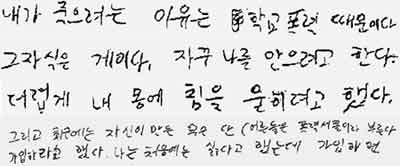 내가 죽으려는 이유는 학교폭력 때문이다
그자식은 게이다, 자꾸 나를 안으려고 한다.
더럽게 내 몸에 힘을 윤하려고 했다.
그리고 최근에는 자신이 만든 무슨 단 (어른들은 폭력서클이라 부른다
가입하라고 했다. 나는 처음에는 싫다고 했는데 가입하면